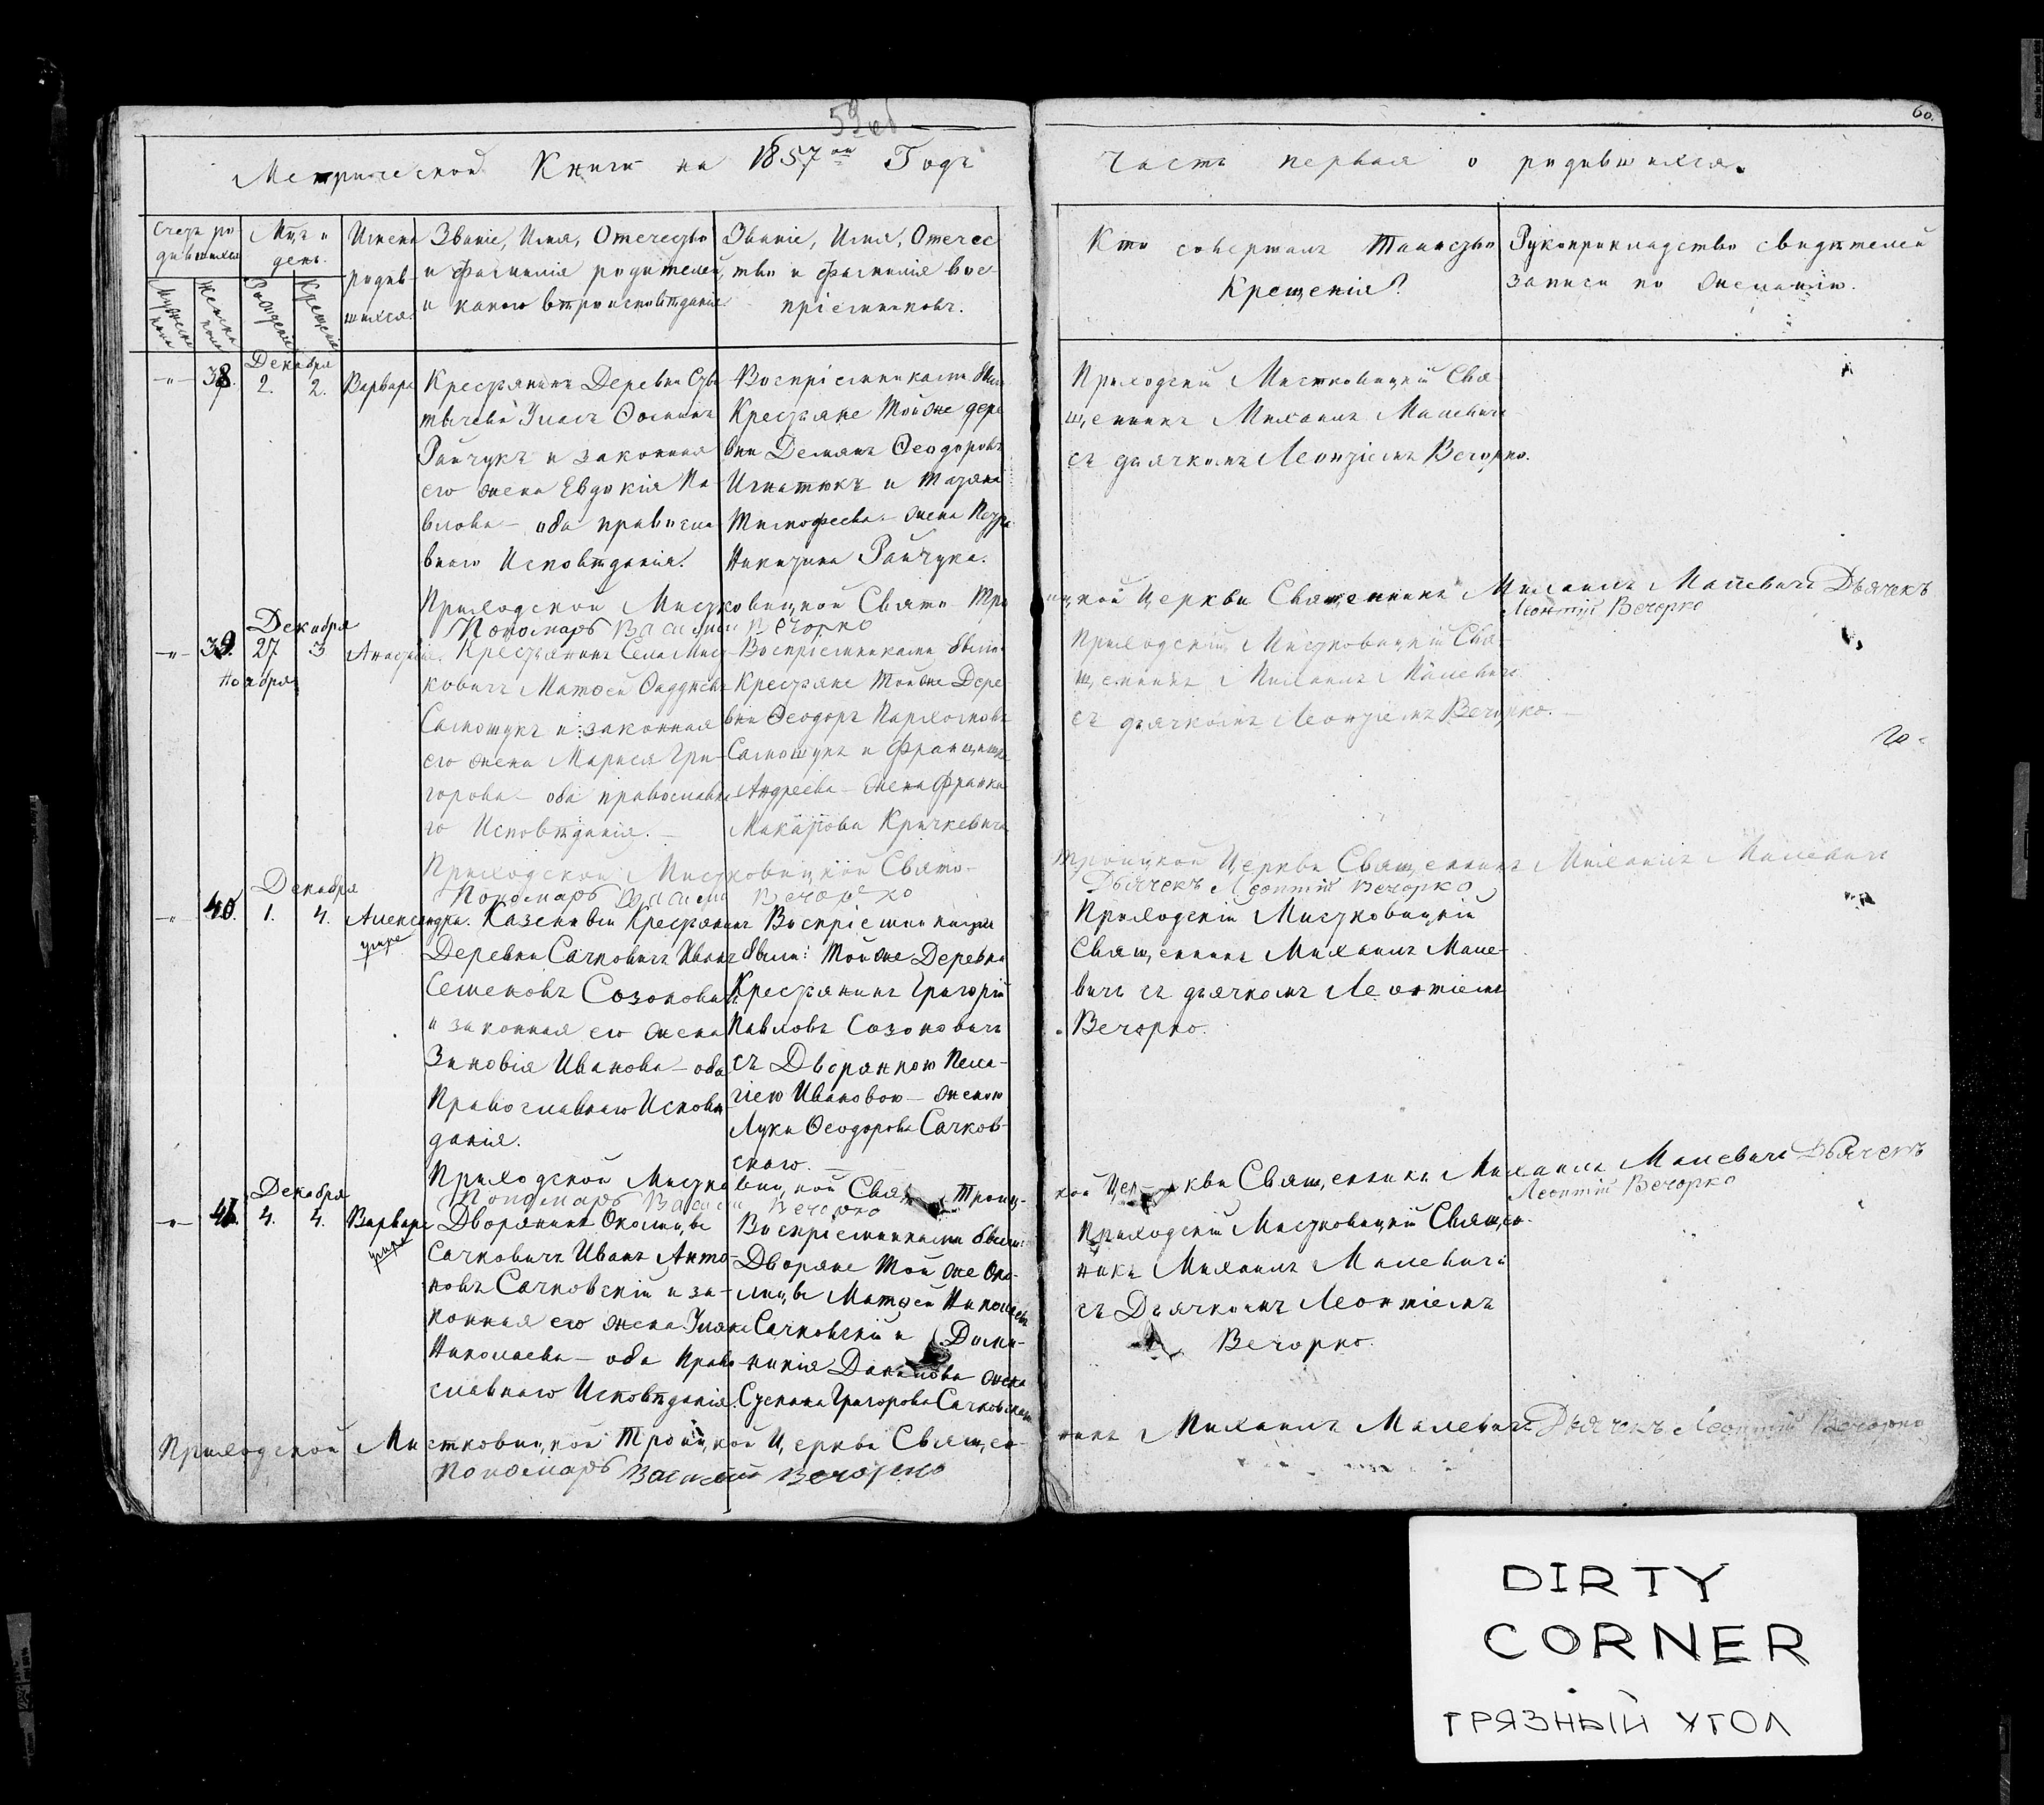 59 об
60.
Метрической Книги на 1857ой Годъ
Часть первая о родившихся.
Счетъ ро
дившихся
Мужеска
пола
Женска
пола
Мцъ и
день.
Рожденія
Крещенія
Имена
родив-
шихся.
Званіе, Имя, Отечество
и Фамилія родителей,
и какого вѣроисповѣданія
Званіе, Имя, Отечес
тво и Фамилія вос-
пріемниковъ.
Кто совершалъ Таинство
Крещенія?
Рукоприкладство свидѣтелей
записи по желанію.
Декабря
38. 2. 2. Варвара
Крестьянинъ Деревни
Осипов
Райчукъ и законная
его жена Евдокія Па-
влова – оба правосла-
внаго Исповѣданія.
Воспріемниками были
Крестьяне той же дере
вни Демянъ Ѳеодоровъ
Игнатюкъ и Татяна
Тимофеева – жена Петра
Никитина Райчука.
Приходскій Мистковицкій Свя-
щенникъ Михаилъ Малевичъ
съ дьячкомъ Леонтіемъ Вечорко.
Приходской Мистковицкой Свято-Тро
ицкой Церкви Священникъ Михаилъ Малевичъ Дьячекъ
Леонтій Вечорко
Пономарь Василий Вечорко
Декабря
39. 27 3
Ноября
Крестьянинъ Села Мист-
ковичъ Матѳей
Самошукъ и законная
его жена Марися Гри-
горова – оба православна
го Исповѣданія. –
Воспріемниками были
Крестьяне той же Дере-
вни Ѳеодоръ Пархомовъ
Самошукъ и Францишка
Андреева – жена Франка
Макарова Кричкевича
Приходскій Мистковицкій Свя-
щенникъ Михаилъ Малевичъ
съ дьячкомъ Леонтіемъ Вечорко. –
Приходской Мистковицкой Свято-
Троицкой Церкви Священникъ Михаилъ Малевичъ
Пономарь Василий Вечорко
Дьячекъ Леонтій Вечорко
Декабря
40. 1. 4. Александра.
умре
Казенный Крестьянинъ
Деревни Сачковичъ Иванъ
Семеновъ Созоновичъ
и законная его жена
Зиновія Иванова – оба
Православнаго Исповѣ
данія.
Воспріемниками
были: той же Деревни
Крестьянинъ Григорій
Павловъ Созоновичъ
съ Дворянкою Пела-
гіею Ивановою – женою
Луки Ѳеодорова Сачков-
скаго. –
Приходскій Мистковицкій
Священникъ Михаилъ Мале-
вичъ съ дьячкомъ Леонтіемъ
Вечорко.
Приходской Мистко
вицкой Свято Троиц-
кой Церкви Священникъ Михаилъ Малевичъ Дьячекъ
Леонтій Вечорко
Пономарь Василий Вечорко
Декабря
41. 4. 4. Варвара
умре
Дворянинъ Околицы
Сачковичъ Иванъ Анто-
новъ Сачковскій и за-
конная его жена
Николаева – оба Право-
славнаго Исповѣданія.
Воспріемниками были:
Дворяне той же Око-
лицы Матѳей Николаевъ
Сачковскій и Доми-
никія Данилова жена
Григорова Сачковскаго
Приходскій Мистковицкій Священ-
никъ Михаилъ Малевичъ
съ Дьячкомъ Леонтіемъ
Вечорко.
Приходской Мистковицкой Троицкой Церкви Священ-
никъ Михаилъ Малевичъ Дьячекъ Леонтій Вечорко
Пономарь Василий Вечорко
DIRTY
CORNER
ГРЯЗНЫЙ УГОЛ